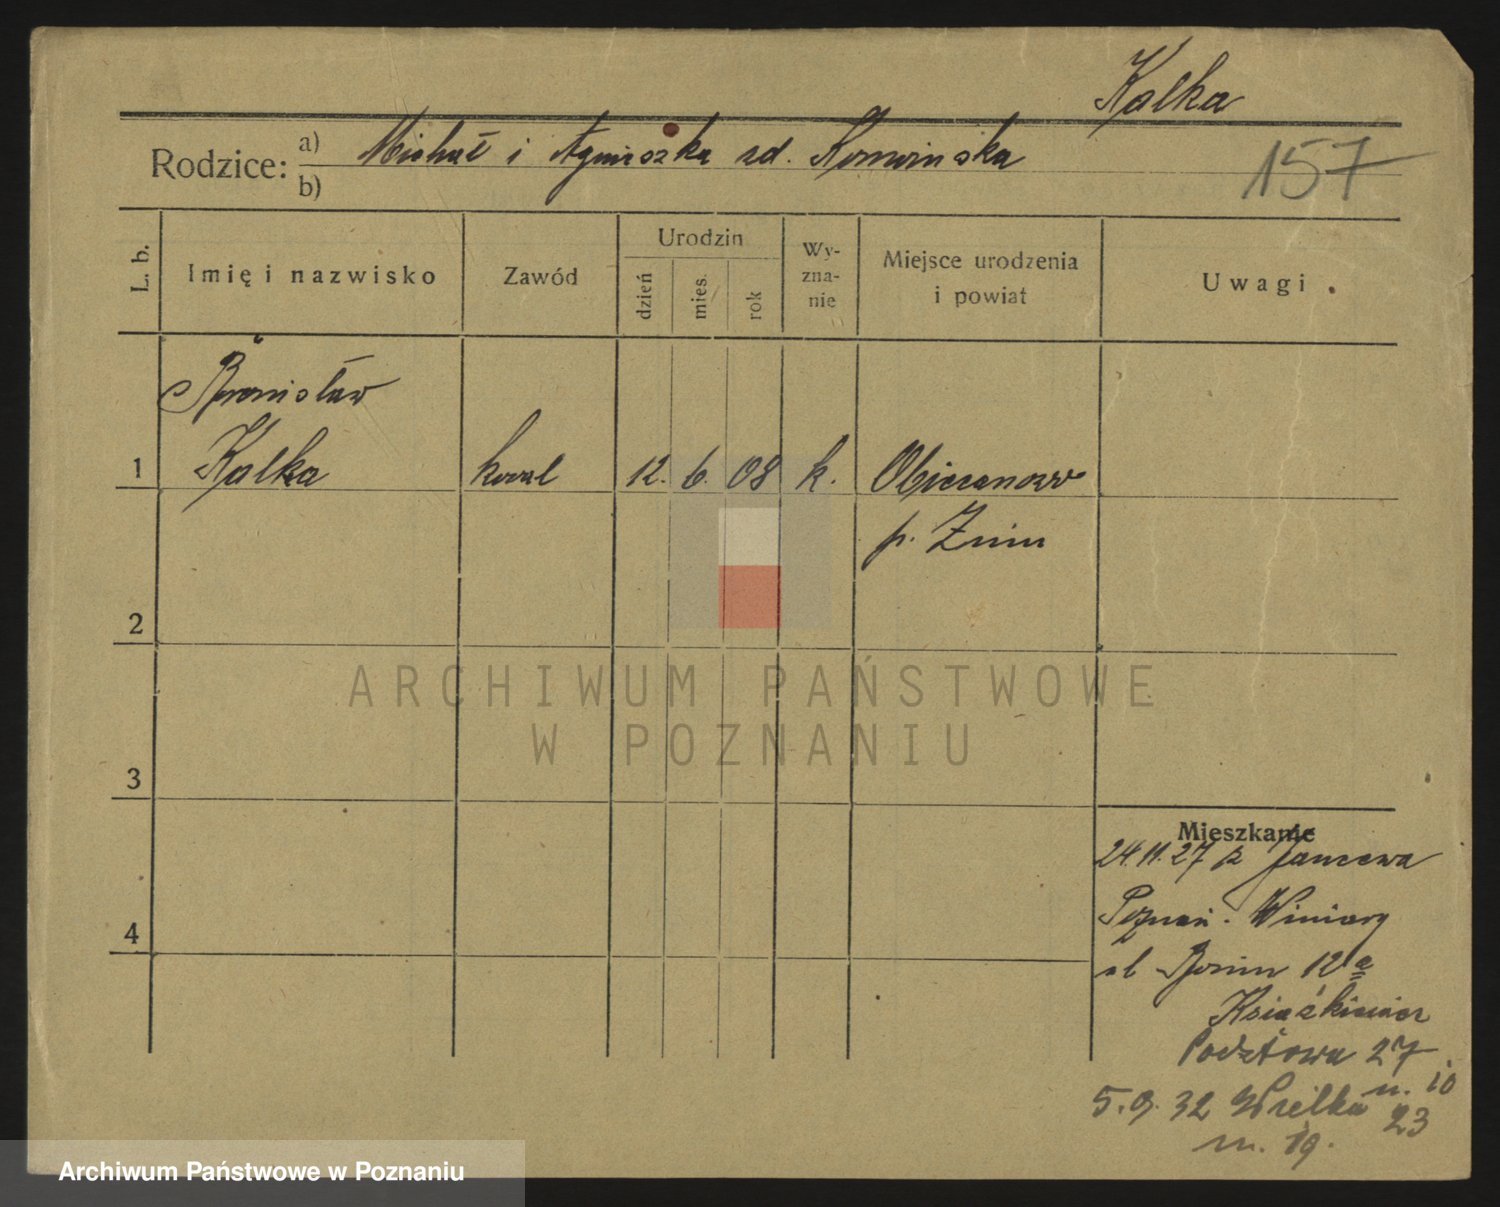 Kalka
Rodzice: a) Michał i Agnieszka zd.
b)
157
L. b.
Imię i nazwisko
Zawód
Urodzin
dzień
mies.
rok
Wy-
zna-
nie
Miejsce urodzenia
i powiat
Uwagi
Bronisław
1 Kalka kowal 12. 6. 08 k. Obiecanowo
p. Żnin
2
3
4
ARCHIWUM PAŃSTWOWE
W POZNANIU
Mieszkanie
24.11.27 z Jancewa
Poznań. Winiary
ul Bonin 12a
Książkiewicz
27
n. 10
5.9.32 Wielka 23
m. 19.
Archiwum Państwowe w Poznaniu